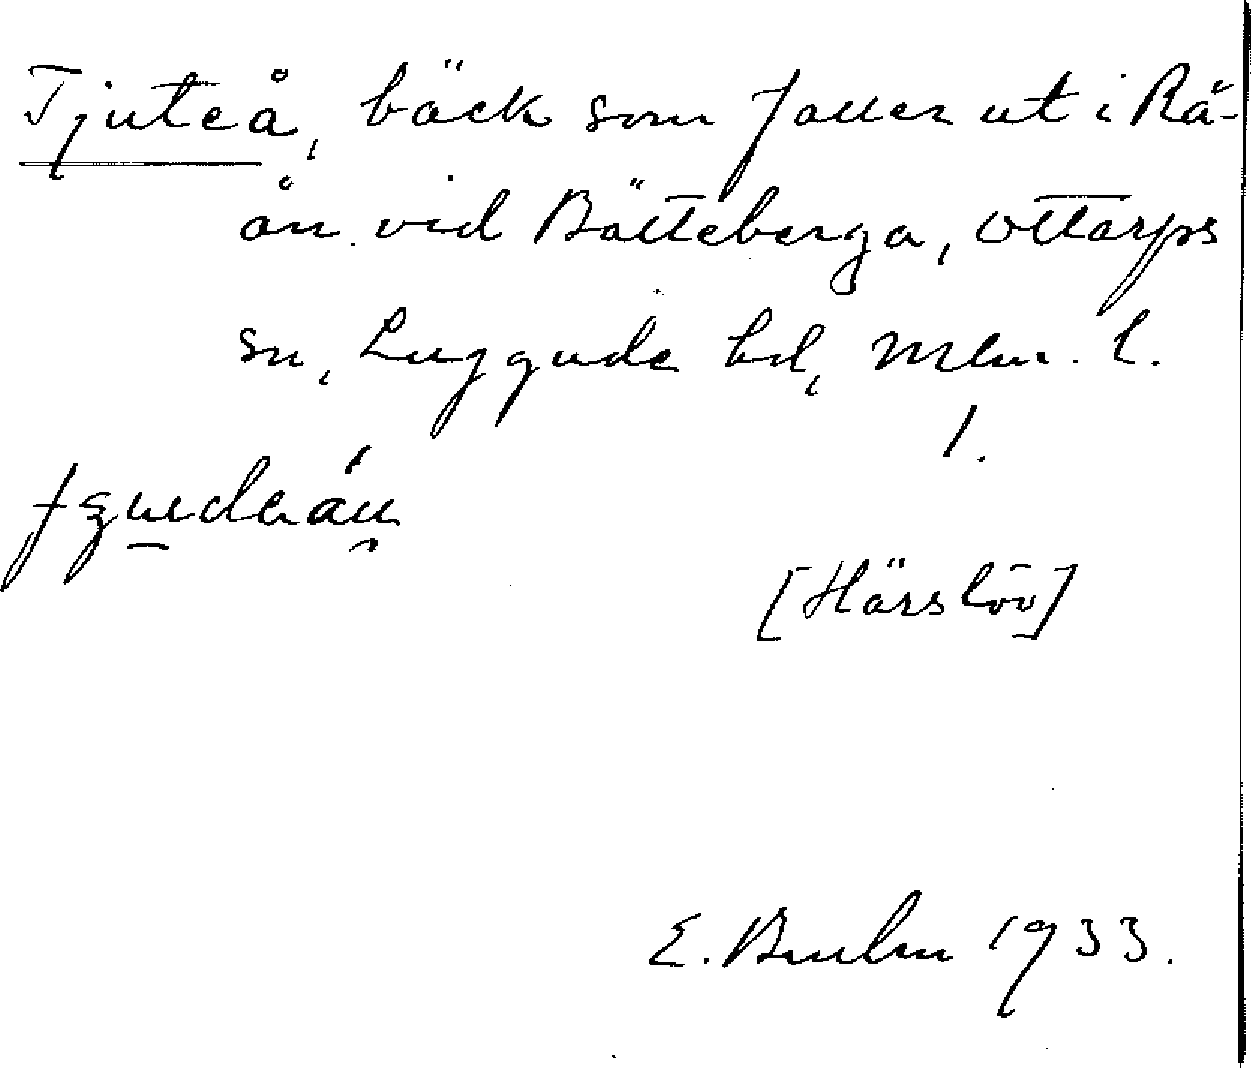 Tjuteå, bäck som faller ut i Rå-
ån vid Bälteberga, Ottarps
sn, Luggude hd, Mlm. l.
1.
[Härslöv]
E. 1933.